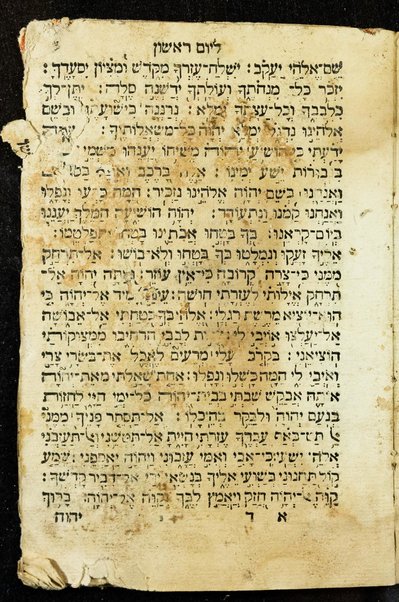 ליום ראשון
שֵׁם אֱלֹהֵי יַעֲקֹב : יִשְׁלַח עֶזְרְךָ מִקֹּדֶשׁ וּמִצִּיּוֹן יִסְעָדֶךָּ :
יִזְכֹּר כָּל־ מִנְחֹתֶךָ וְעוֹלָתְךָ יְדַשְּׁנֶה סֶלָה : יִתֶּן־לְךָ
כִלְבָבֶךָ וְכָל־עֲצָתְךָ יְמַלֵּא : נְרַנְּנָה בִּישׁוּעָתֶךָ וּבְשֵׁם
אֱלֹהֵינוּ נִדְגֹּל יְמַלֵּא יְהוָה כָּל־מִשְׁאֲלוֹתֶיךָ : עַתָּה
יָדַעְתִּי כִּי הוֹשִׁיעַ יְהוָה מְשִׁיחוֹ יַעֲנֵהוּ מִשְּׁמֵי
יֵשַׁע יְמִינוֹ : אֵלֶּה בָרֶכֶב וְאֵלֶּה
וַאֲנַחְנוּ בְּשֵׁם יְהוָה אֱלֹהֵינוּ נַזְכִּיר : הֵמָּה כָּרְעוּ וְנָפָלוּ
וַאֲנַחְנוּ קַּמְנוּ וַנִּתְעוֹדָד : יְהוָה הוֹשִׁיעָה הַמֶּלֶךְ יַעֲנֵנוּ
בְיוֹם קָרְאֵנוּ : בְּךָ בָּטְחוּ אֲבֹתֵינוּ בָּטְחוּ וַתְּפַלְּטֵמוֹ :
אֵלֶיךָ זָעֲקוּ וְנִמְלָטוּ בְּךָ בָטְחוּ וְלֹא־בוֹשׁוּ : אַל־תִּרְחַק
מִמֶּנִּי כִּי־צָרָה קְרוֹבָה כִּי־אֵין עוֹזֵר : וְאַתָּה יְהוָה אַל־
תִּרְחָק אֱיָלוּתִי לְעֶזְרָתִי חוּשָׁה : עֵינַי תָּמִיד אֶל־יְהוָה כִּי
הוּא־יוֹצִיא מֵרֶשֶׁת רַגְלָי : אֱלֹהַי בְּךָ בָטַחְתִּי אַל־אֵבוֹשָׁה
אַל־יַעַלְצוּ אוֹיְבַי לִי : צָרוֹת לְבָבִי הִרְחִיבוּ מִמְּצוּקוֹתַי
הוֹצִיאֵנִי : בִּקְרֹב עָלַי מְרֵעִים לֶאֱכֹל אֶת־בְּשָׂרִי צָרַי
וְאֹיְבַי לִי הֵמָּה כָשְׁלוּ וְנָפָלוּ : אַחַת שָׁאַלְתִּי מֵאֵת־יְהוָה
אוֹתָהּ אֲבַקֵּשׁ שִׁבְתִּי בְּבֵית־יְהוָה כָּל־יְמֵי חַיַּי לַחֲזוֹת
בְּנֹעַם יְהוָה וּלְבַקֵּר בְּהֵיכָלוֹ : אַל־תַּסְתֵּר פָּנֶיךָ מִמֶּנִּי
אַל תַּט־בְּאַף עַבְדֶּךָ עֶזְרָתִי הָיִיתָ אַל־תִּטְּשֵׁנִי וְאַל־תַּעַזְבֵנִי
אֱלֹהֵי יִשְׁעִי : כִּי־אָבִי וְאִמִּי עֲזָבוּנִי וַיהוָה יַאַסְפֵנִי : שְׁמַע
קוֹל תַּחֲנוּנַי בְּשַׁוְּעִי אֵלֶיךָ בְּנָשְׂאִי יָדַי אֶל־דְּבִיר קָדְשֶׁךָ :
קַוֵּה אֶל־יְהוָה חֲזַק וְיַאֲמֵץ לִבֶּךָ וְקַוֵּה אֶל־יְהוָה : בָּרוּךְ
א ד יהוה